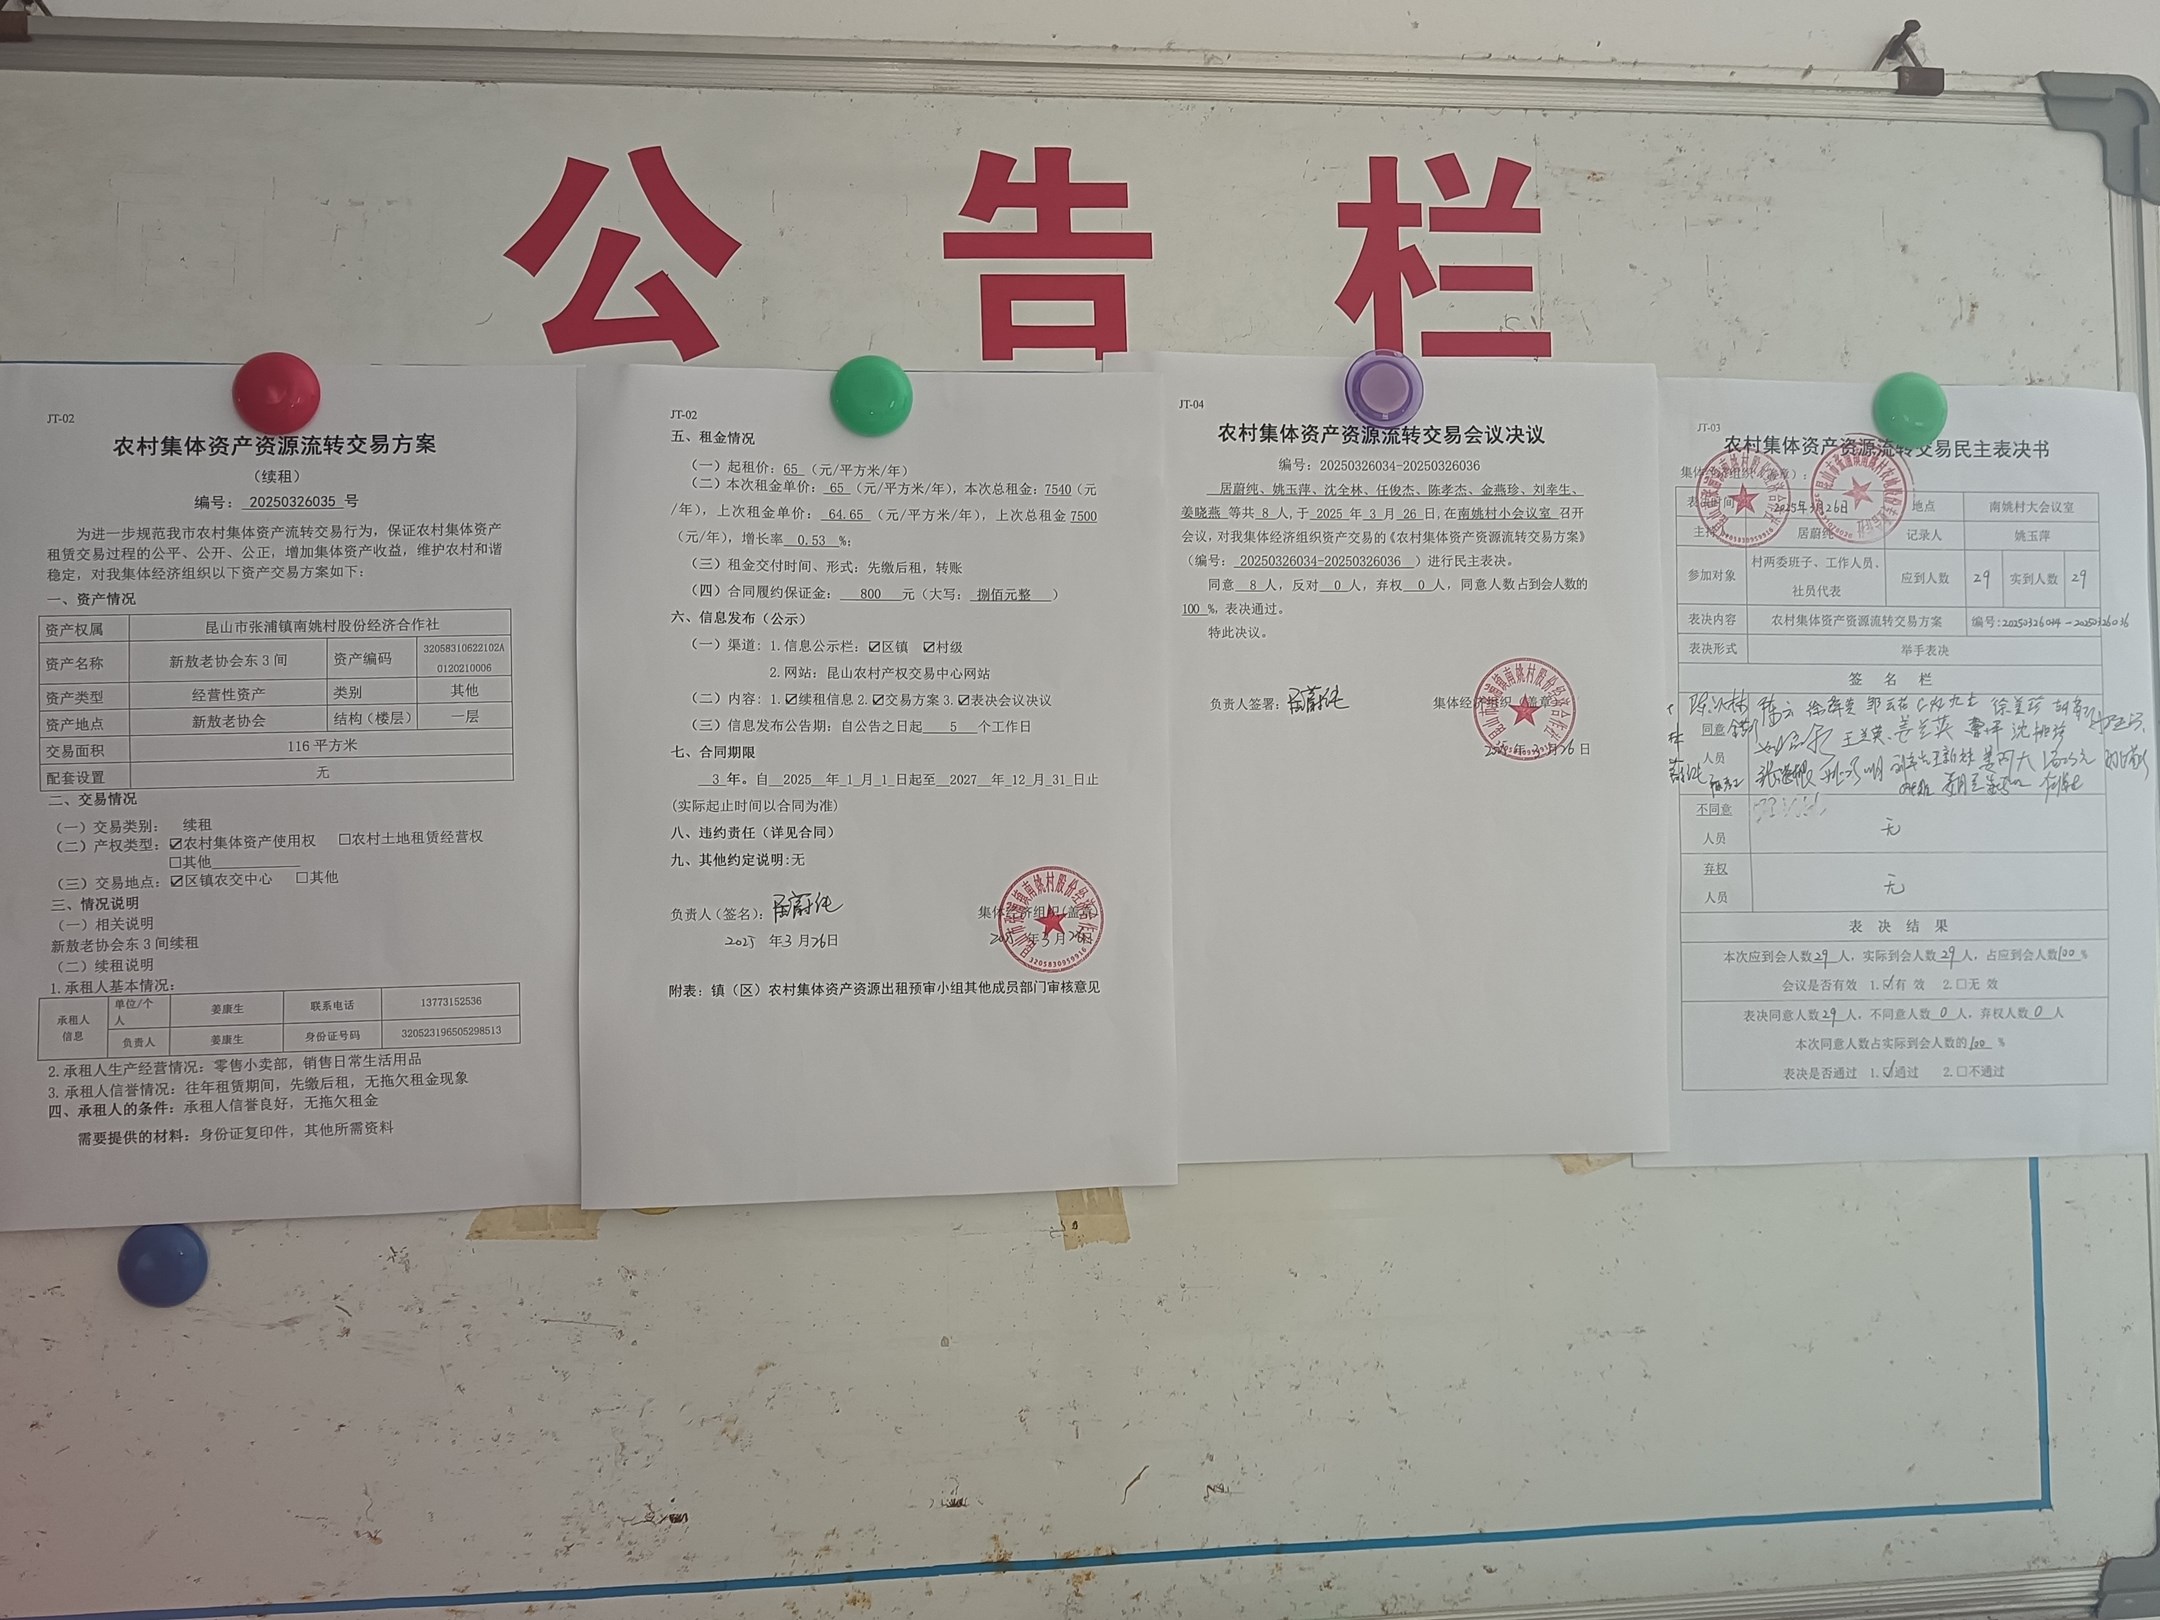 公告栏
JT-02
农村集体资产资源流转交易方案
（续租）
编号： 20250326035 号
为进一步规范我市农村集体资产流转交易行为，保证农村集体资产
租赁交易过程的公平、公开、公正，增加集体资产收益，维护农村和谐
稳定，对我集体经济组织以下资产交易方案如下：
一、资产情况
资产权属 昆山市张浦镇南姚村股份经济合作社
资产名称 新敖老协会东3间 资产编码 32058310622102A
0120210006
资产类型 经营性资产 类别 其他
资产地点 新敖老协会 结构（楼层） 一层
交易面积 116平方米
配套设置 无
二、交易情况
（一）交易类别： 续租
（二）产权类型：☑农村集体资产使用权 □农村土地租赁经营权
□其他
（三）交易地点：☑区镇农交中心 □其他
三、情况说明
（一）相关说明
新敖老协会东3间续租
（二）续租说明
1.承租人基本情况：
承租人信息 单位/个人 姜康生 联系电话 13773152536
负责人 姜康生 身份证号码 320523196505298513
2.承租人生产经营情况：零售小卖部，销售日常生活用品
3.承租人信誉情况：往年租赁期间，先缴后租，无拖欠租金现象
四、承租人的条件：承租人信誉良好，无拖欠租金
需要提供的材料：身份证复印件，其他所需资料
JT-02
五、租金情况
（一）起租价：65（元/平方米/年）
（二）本次租金单价：65（元/平方米/年），本次总租金：7540（元
/年），上次租金单价：64.65（元/平方米/年），上次总租金7500
（元/年），增长率 0.53 %；
（三）租金交付时间、形式：先缴后租，转账
（四）合同履约保证金： 800 元（大写：捌佰元整）
六、信息发布（公示）
（一）渠道：1.信息公示栏：☑区镇 ☑村级
2.网站：昆山农村产权交易中心网站
（二）内容：1.☑续租信息2.☑交易方案3.☑表决会议决议
（三）信息发布公告期：自公告之日起 5 个工作日
七、合同期限
3 年。自 2025 年_1 月_1_日起至 2027 年_12_月_31_日止
(实际起止时间以合同为准)
八、违约责任（详见合同）
九、其他约定说明:无
负责人（签名）：居蔚纯 集体经济组织(盖章)
2025 年3月26日 2025 年3月26日
3205830959916
附表：镇（区）农村集体资产资源出租预审小组其他成员部门审核意见
JT-04
农村集体资产资源流转交易会议决议
编号：20250326034-20250326036
居蔚纯、姚玉萍、沈全林、任俊杰、陈孝杰、金燕珍、刘幸生、
姜晓燕 等共 8 人,于 2025 年 3 月 26 日,在南姚村小会议室 召开
会议，对我集体经济组织资产交易的《农村集体资产资源流转交易方案》
（编号：20250326034-20250326036 ）进行民主表决。
同意 8 人，反对 0 人，弃权 0 人，同意人数占到会人数的
100 %，表决通过。
特此决议。
负责人签署：居蔚纯 集体经济组织（盖章）
2025年3月26日
JT-03
农村集体资产资源流转交易民主表决书
集体经济组织（盖章）：
表决时间 2025年3月26日 地点 南姚村大会议室
主持人 居蔚纯 记录人 姚玉萍
参加对象 村两委班子、工作人员、社员代表 应到人数 29 实到人数 29
表决内容 农村集体资产资源流转交易方案 编号:20250326034-20250326036
表决形式 举手表决
签 名 栏
同意人员
不同意人员 无
弃权人员 无
表 决 结 果
本次应到会人数29人，实际到会人数29人，占应到会人数100%
会议是否有效 1.☑有 效 2.□无 效
表决同意人数29人，不同意人数 0 人，弃权人数 0 人
本次同意人数占实际到会人数的100 %
表决是否通过 1.☑通过 2.□不通过